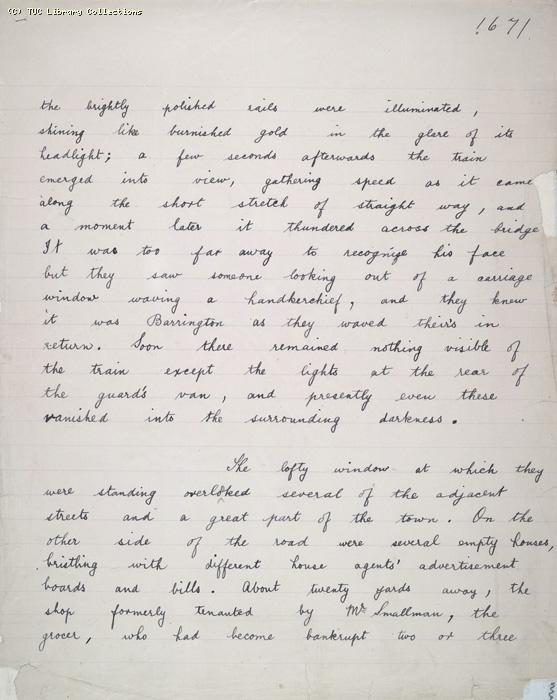 (C) TUC Library Collections
1671
the brightly polished rails were illuminated,
shining like burnished gold in the glare of its
headlight; a few seconds afterwards the train
emerged into view, gathering speed as it came
along the short stretch of straight way, and
a moment later it thundered across the bridge
It was too far away to recognize his face
but they saw someone looking out of a carriage
window waving a handkerchief, and they knew
it was Barrington as they waved theirs in
return. Soon there remained nothing visible of
the train except the lights at the rear of
the guard's van, and presently even these
vanished into the surrounding darkness.
The lofty window at which they
were standing overlooked several of the adjacent
streets and a great part of the town. On the
other side of the road were several empty houses,
bristling with different house agents' advertisement
boards and bills. About twenty yards away, the
shop formerly tenanted by Mr Smallman, the
grocer, who had become bankrupt two or three